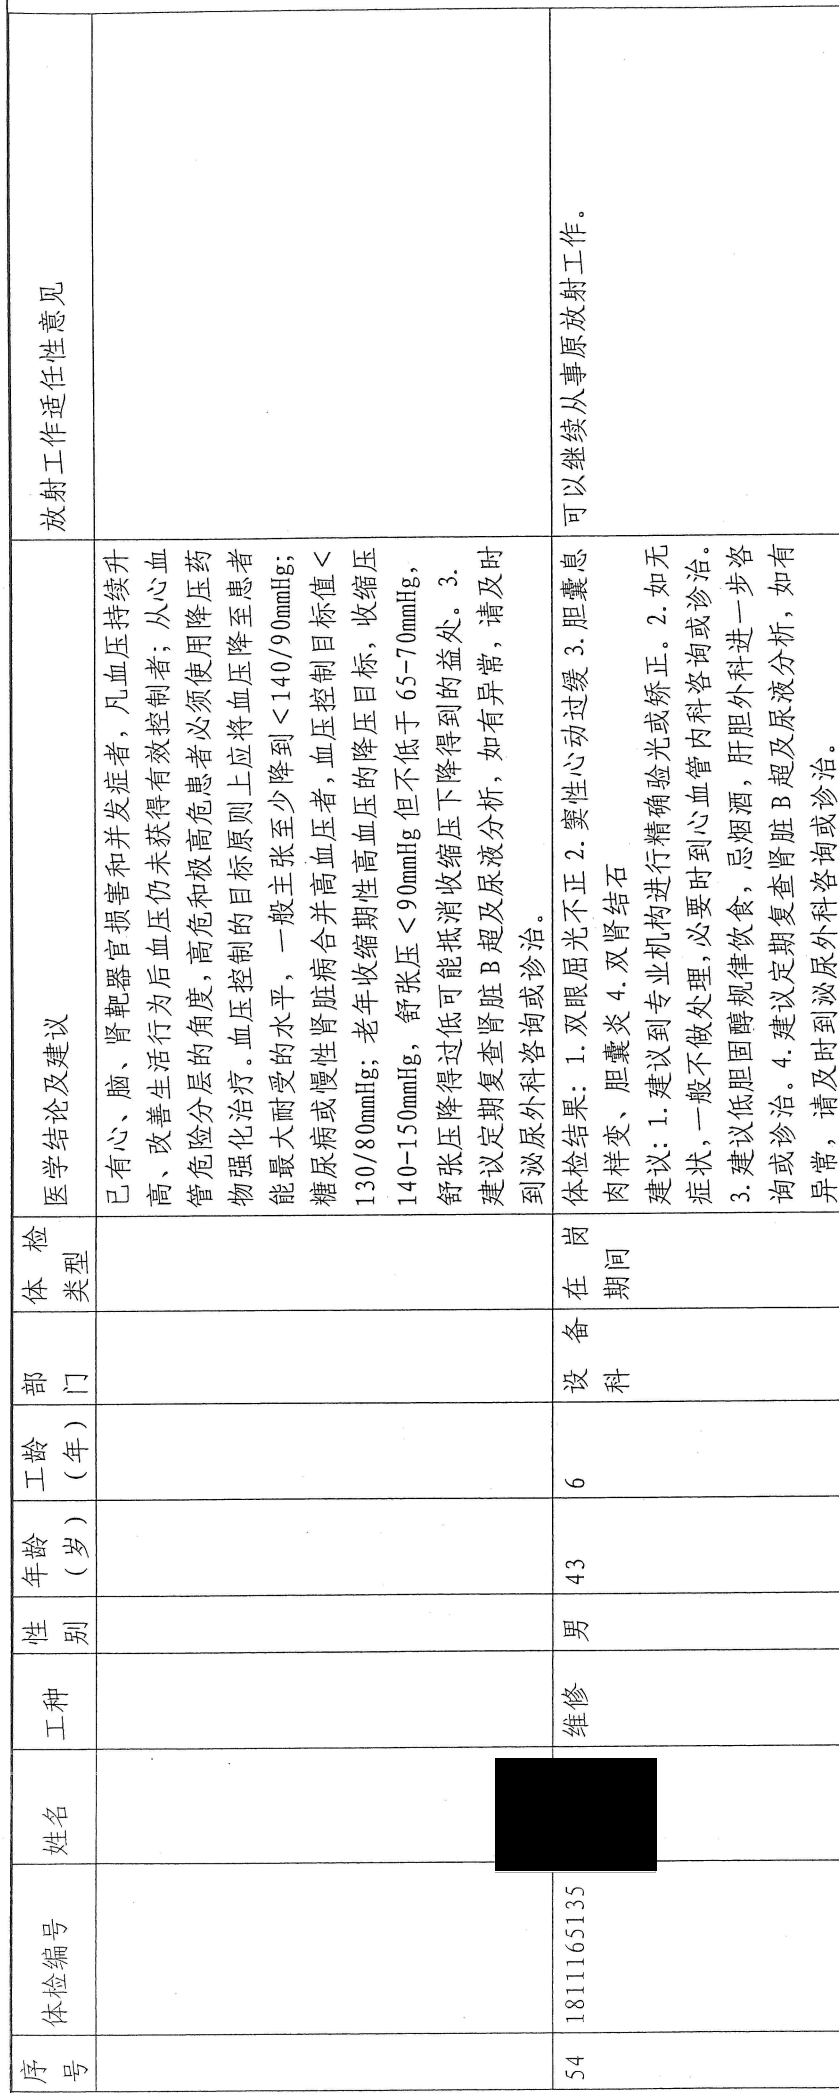 序号 体检编号 姓名 工种 性别 年龄(岁) 工龄(年) 部门 体检类型 医学结论及建议 放射工作适任性意见
已有心、脑、肾靶器官损害和并发症者，凡血压持续升
高、改善生活行为后血压仍未获得有效控制者；从心血
管危险分层的角度，高危和极高危患者必须使用降压药
物强化治疗。血压控制的目标原则上应将血压降至患者
能最大耐受的水平，一般主张至少降到＜140/90mmHg；
糖尿病或慢性肾脏病合并高血压者，血压控制目标值＜
130/80mmHg；老年收缩期性高血压的降压目标，收缩压
140-150mmHg，舒张压＜90mmHg 但不低于 65-70mmHg，
舒张压降得过低可能抵消收缩压下降得到的益处。3.
建议定期复查肾脏 B 超及尿液分析，如有异常，请及时
到泌尿外科咨询或诊治。
54 1811165135 维修 男 43 6 设备科 在岗期间 体检结果：1. 双眼屈光不正 2. 窦性心动过缓 3. 胆囊息 可以继续从事原放射工作。
肉样变、胆囊炎 4. 双肾结石
建议：1. 建议到专业机构进行精确验光或矫正。2. 如无
症状，一般不做处理，必要时到心血管内科咨询或诊治。
3. 建议低胆固醇规律饮食，忌烟酒，肝胆外科进一步咨
询或诊治。4. 建议定期复查肾脏 B 超及尿液分析，如有
异常，请及时到泌尿外科咨询或诊治。